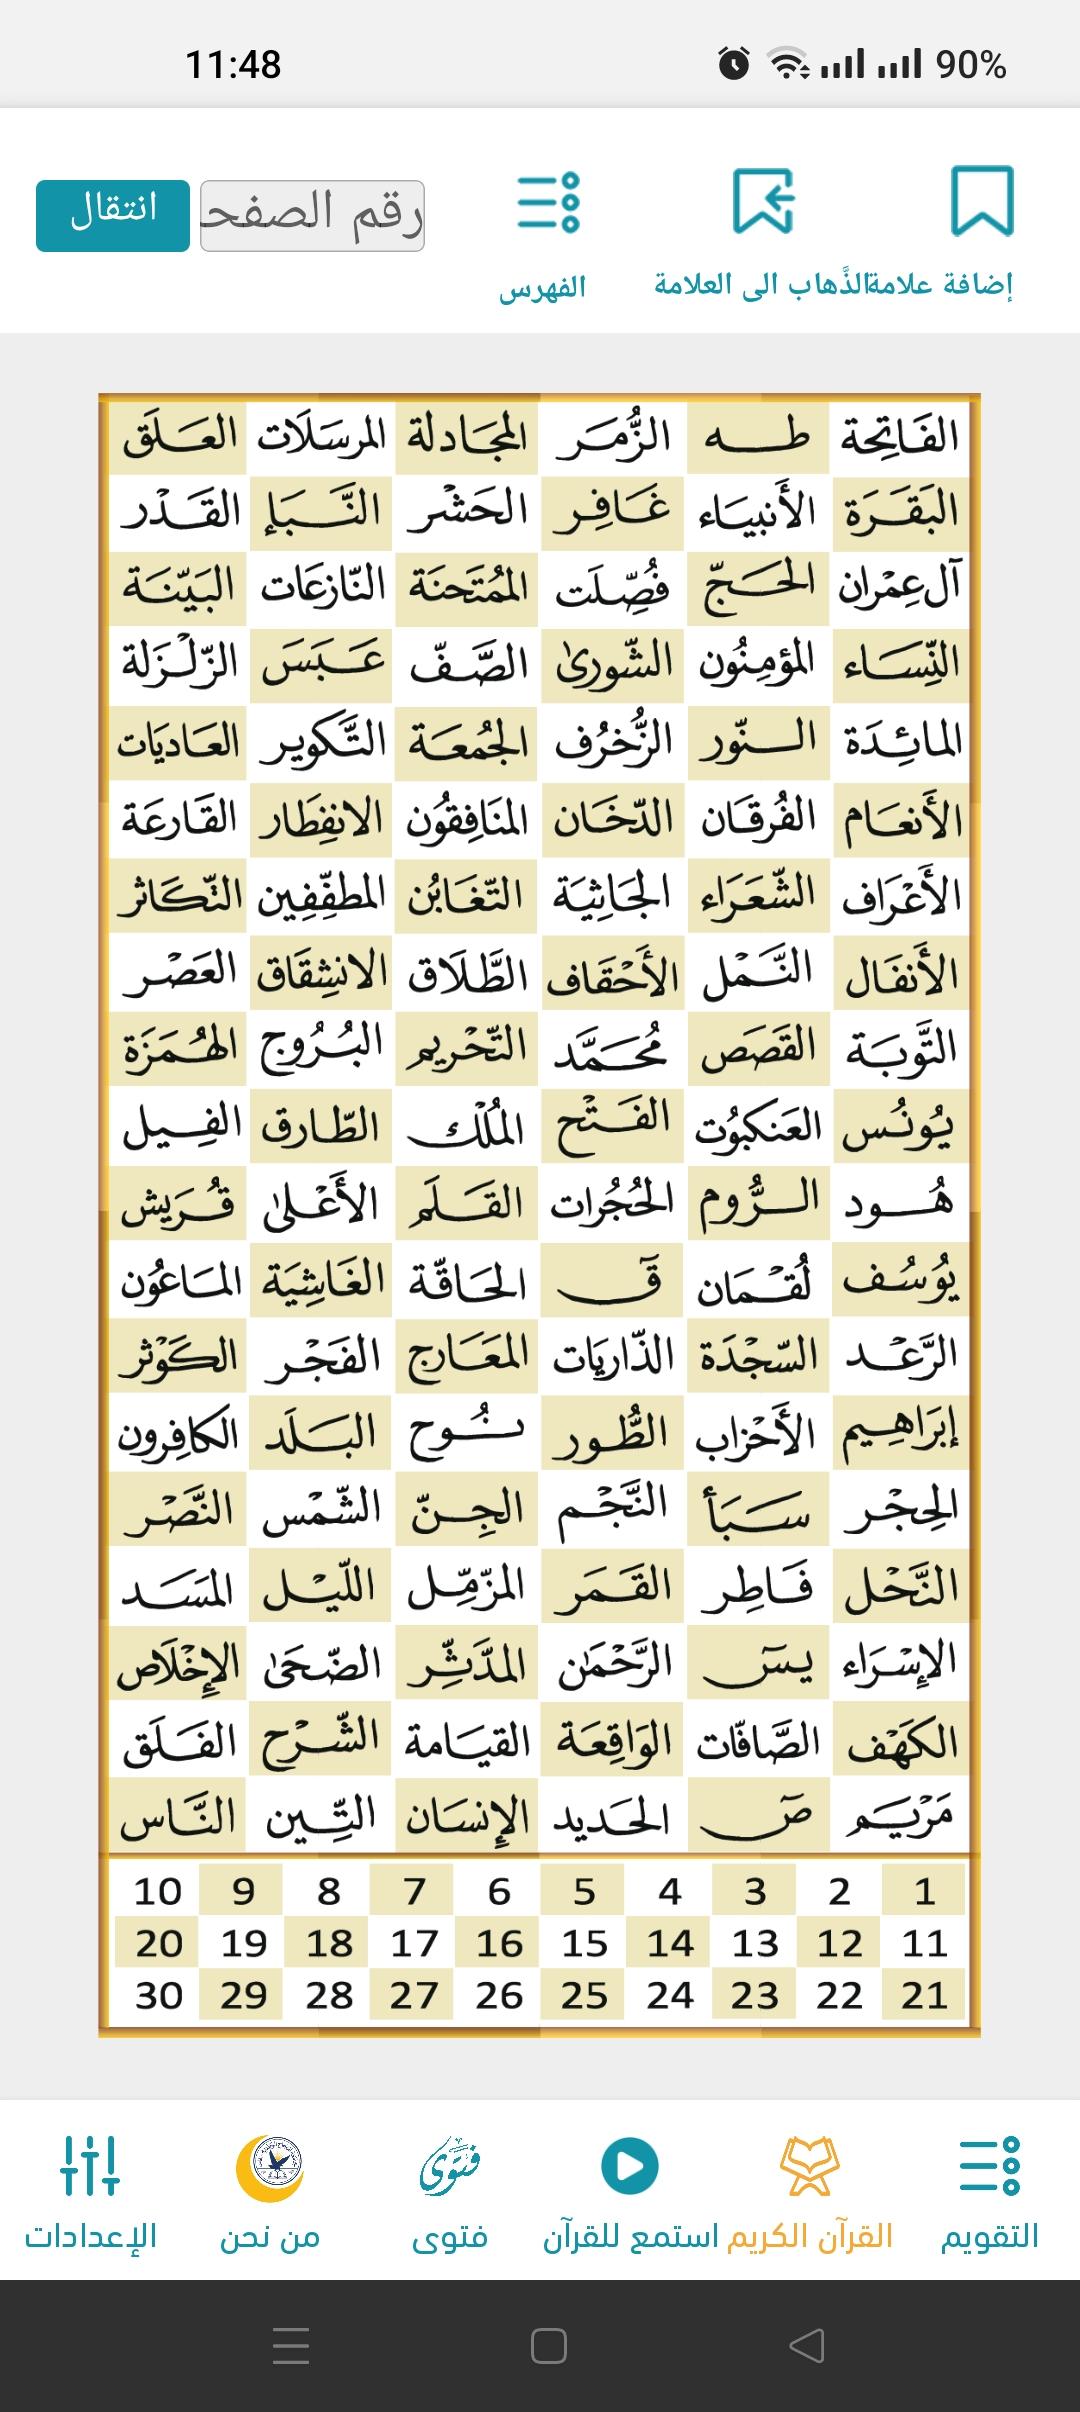 11:48 90%
إضافة علامة الذَّهاب الى العلامة الفهرس رقم الصفح انتقال
الفَاتِحة طه الزُّمَر المجَادلة المرسَلَات العَلَق
البَقَرَة الأنبيَاء غَافِر الحَشْر النَّبَإ القَدْر
آل عِمْران الحَجّ فُصِّلَت المُمْتَحنَة النّازعَات البَيّنَة
النِّسَاء المؤمِنُون الشّورىٰ الصَّفّ عَبَسَ الزّلْزَلة
المائِدَة النّور الزُّخرُف الجُمُعَة التَّكوير العَاديَات
الأَنعَام الفُرقَان الدّخَان المنَافِقُون الانفِطَار القَارعَة
الأَعْرَاف الشّعَرَاء الجَاثِيَة التّغَابُن المطفِّفِين التّكَاثر
الأَنفَال النَّمْل الأَحْقَاف الطَّلَاق الانشِقَاق العَصْر
التَّوبَة القَصَص مُحَمَّد التّحْريم البُرُوج الهُمَزَة
يُونُس العَنكبُوت الفَتْح المُلْك الطّارق الفِيل
هُود الرُّوم الحُجُرات القَلَم الأَعْلىٰ قُرَيش
يُوسُف لُقْمَان قٓ الحَاقّة الغَاشِيَة المَاعُون
الرَّعْد السّجْدَة الذّاريَات المعَارج الفَجْر الكَوْثر
إبرَاهِيم الأَحْزاب الطُّور نُوح البَلَد الكافِرون
الحِجْر سَبَأ النَّجْم الجِنّ الشّمْس النَّصْر
النَّحْل فَاطِر القَمَر المزّمِّل اللّيْل المَسَد
الإسْرَاء يسٓ الرَّحْمٰن المدَّثِّر الضّحَىٰ الإِخْلَاص
الكهْف الصَّافّات الوَاقِعَة القيَامة الشّرْح الفَلَق
مَرْيَم صٓ الحَديد الإِنسَان التِّين النَّاس
1 2 3 4 5 6 7 8 9 10
11 12 13 14 15 16 17 18 19 20
21 22 23 24 25 26 27 28 29 30
فتوى
التقويم القرآن الكريم استمع للقرآن فتوى من نحن الإعدادات